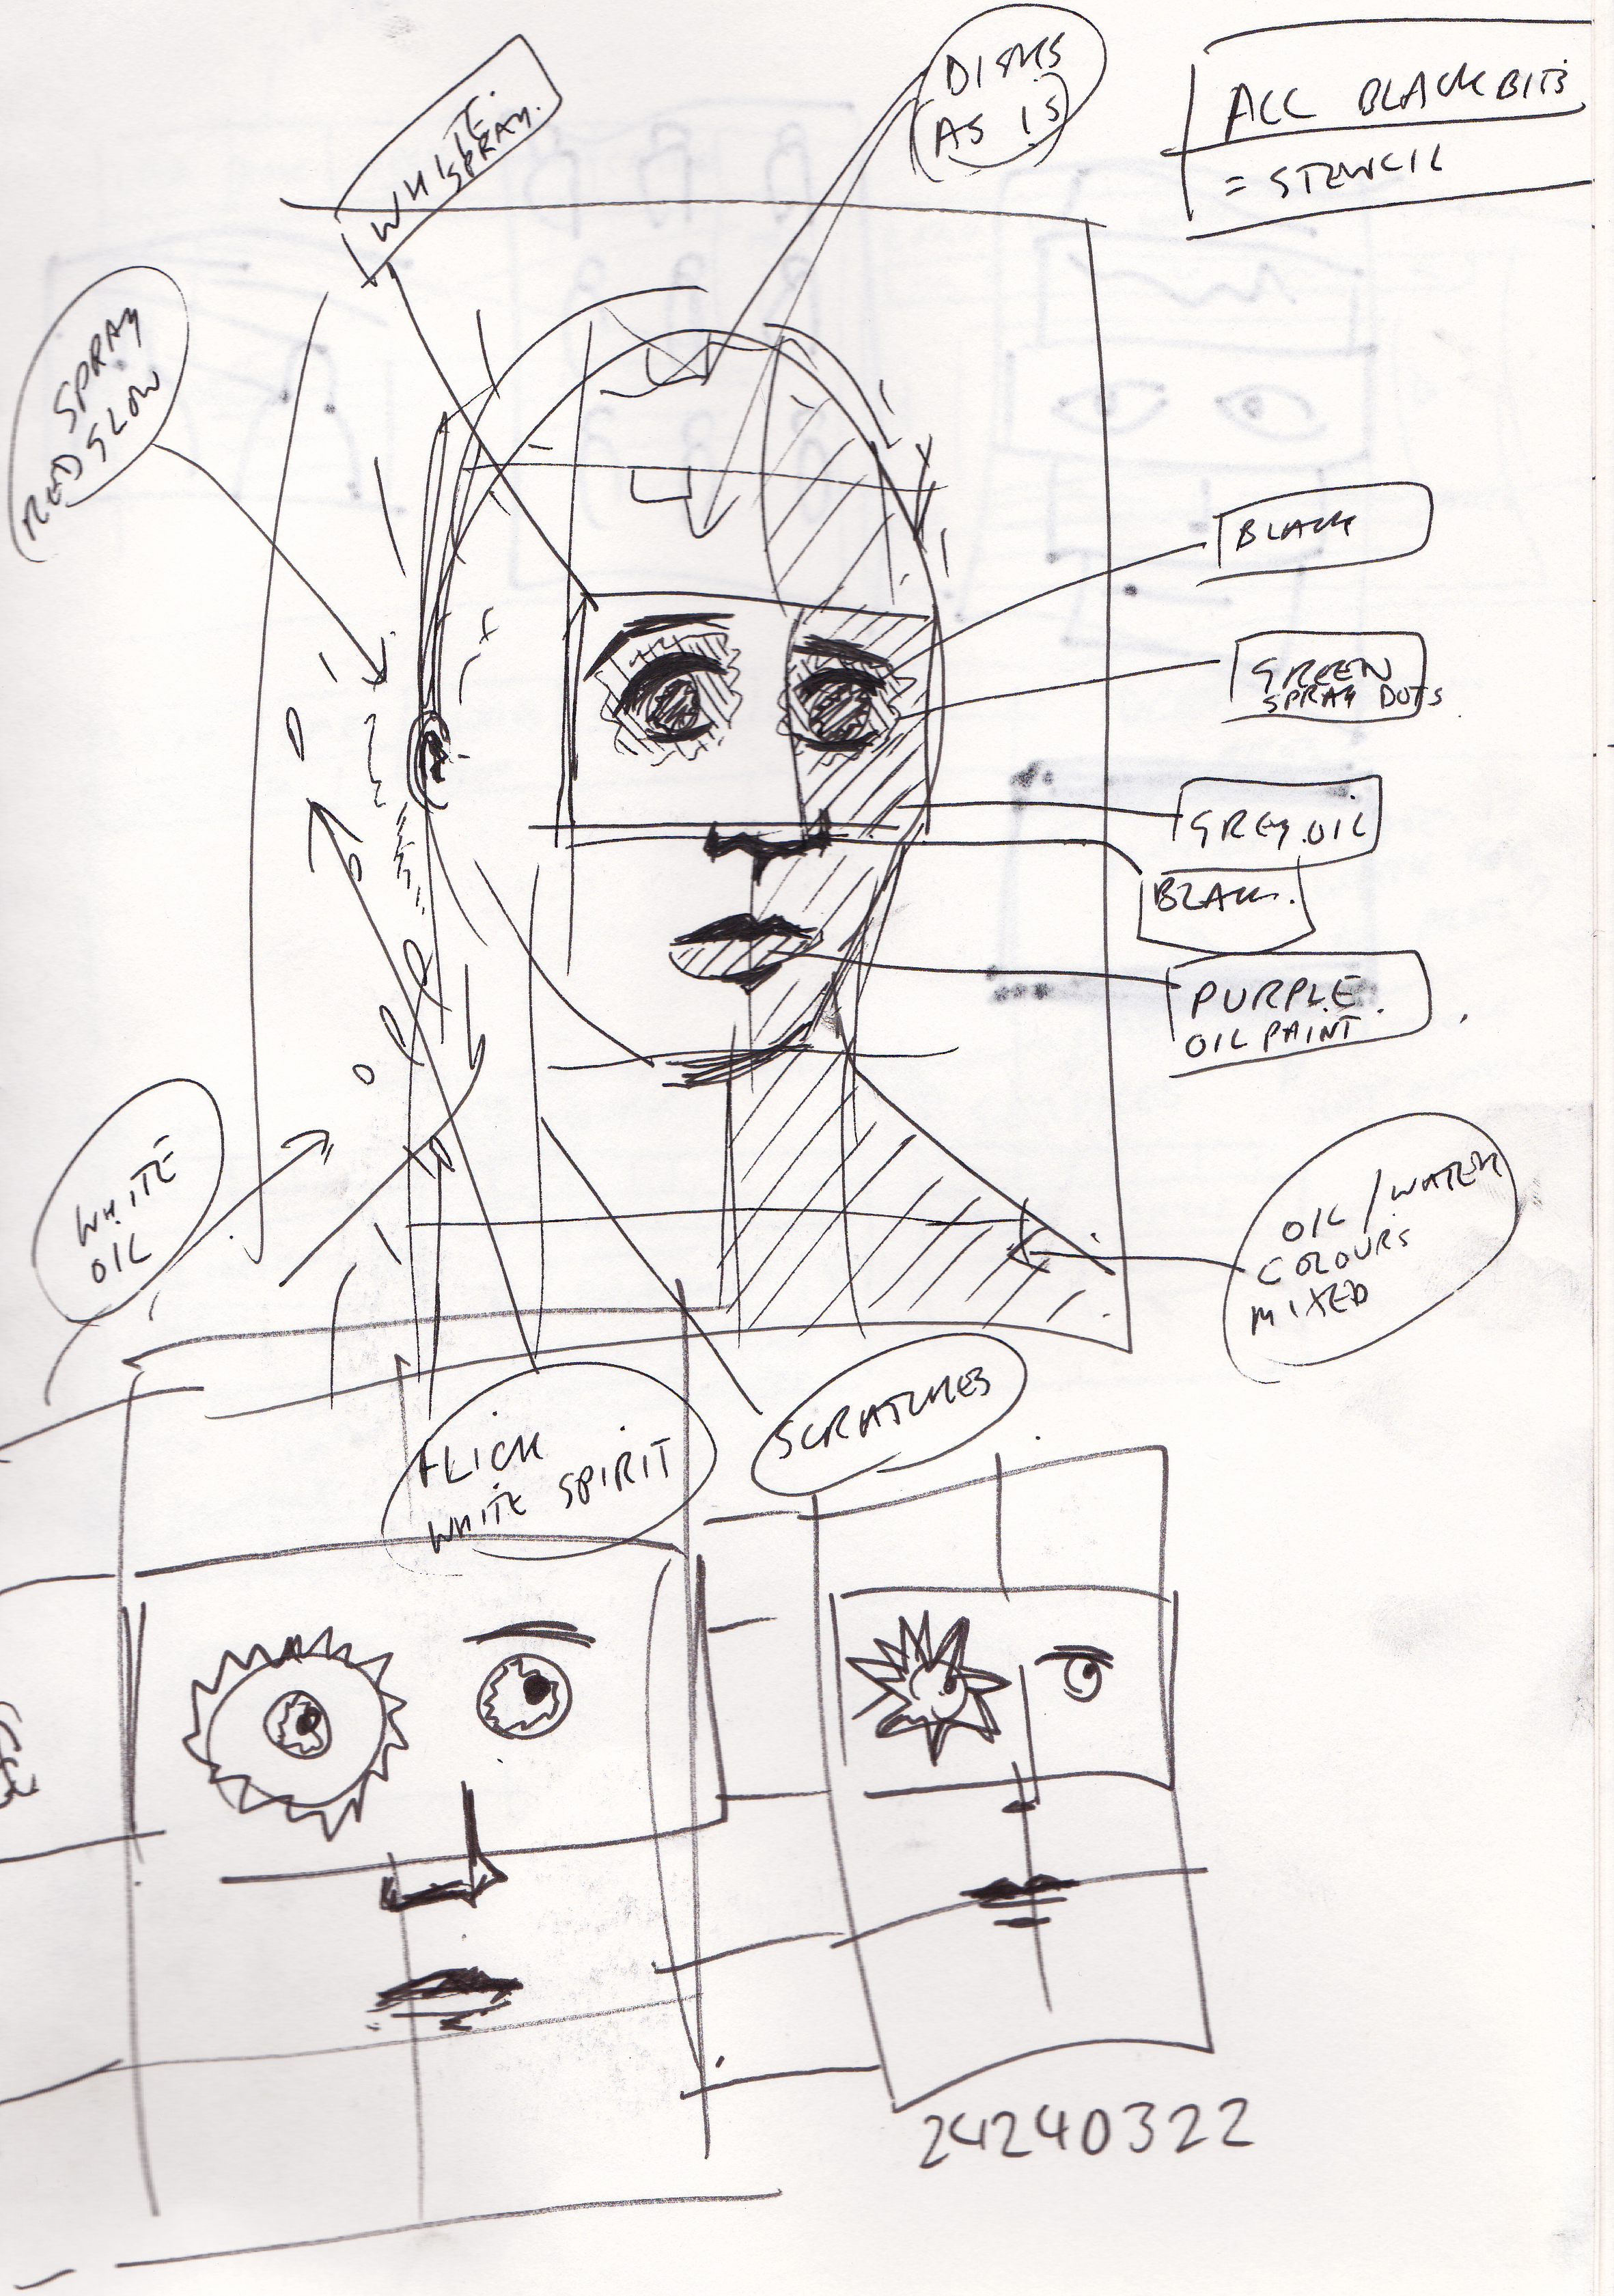 DISKS
(AS IS)
ALL BLACK BITS
= STENCIL
WHITE
SPRAY.
SPRAY
RED GLOW
BLACK
GREEN
SPRAY DOTS
GREY OIL
BLACK.
PURPLE
OIL PAINT
WHITE
OIL
OIL / WATER
COLOURS
MIXED
FLICK
WHITE SPIRIT
SCRATCHES
24240322